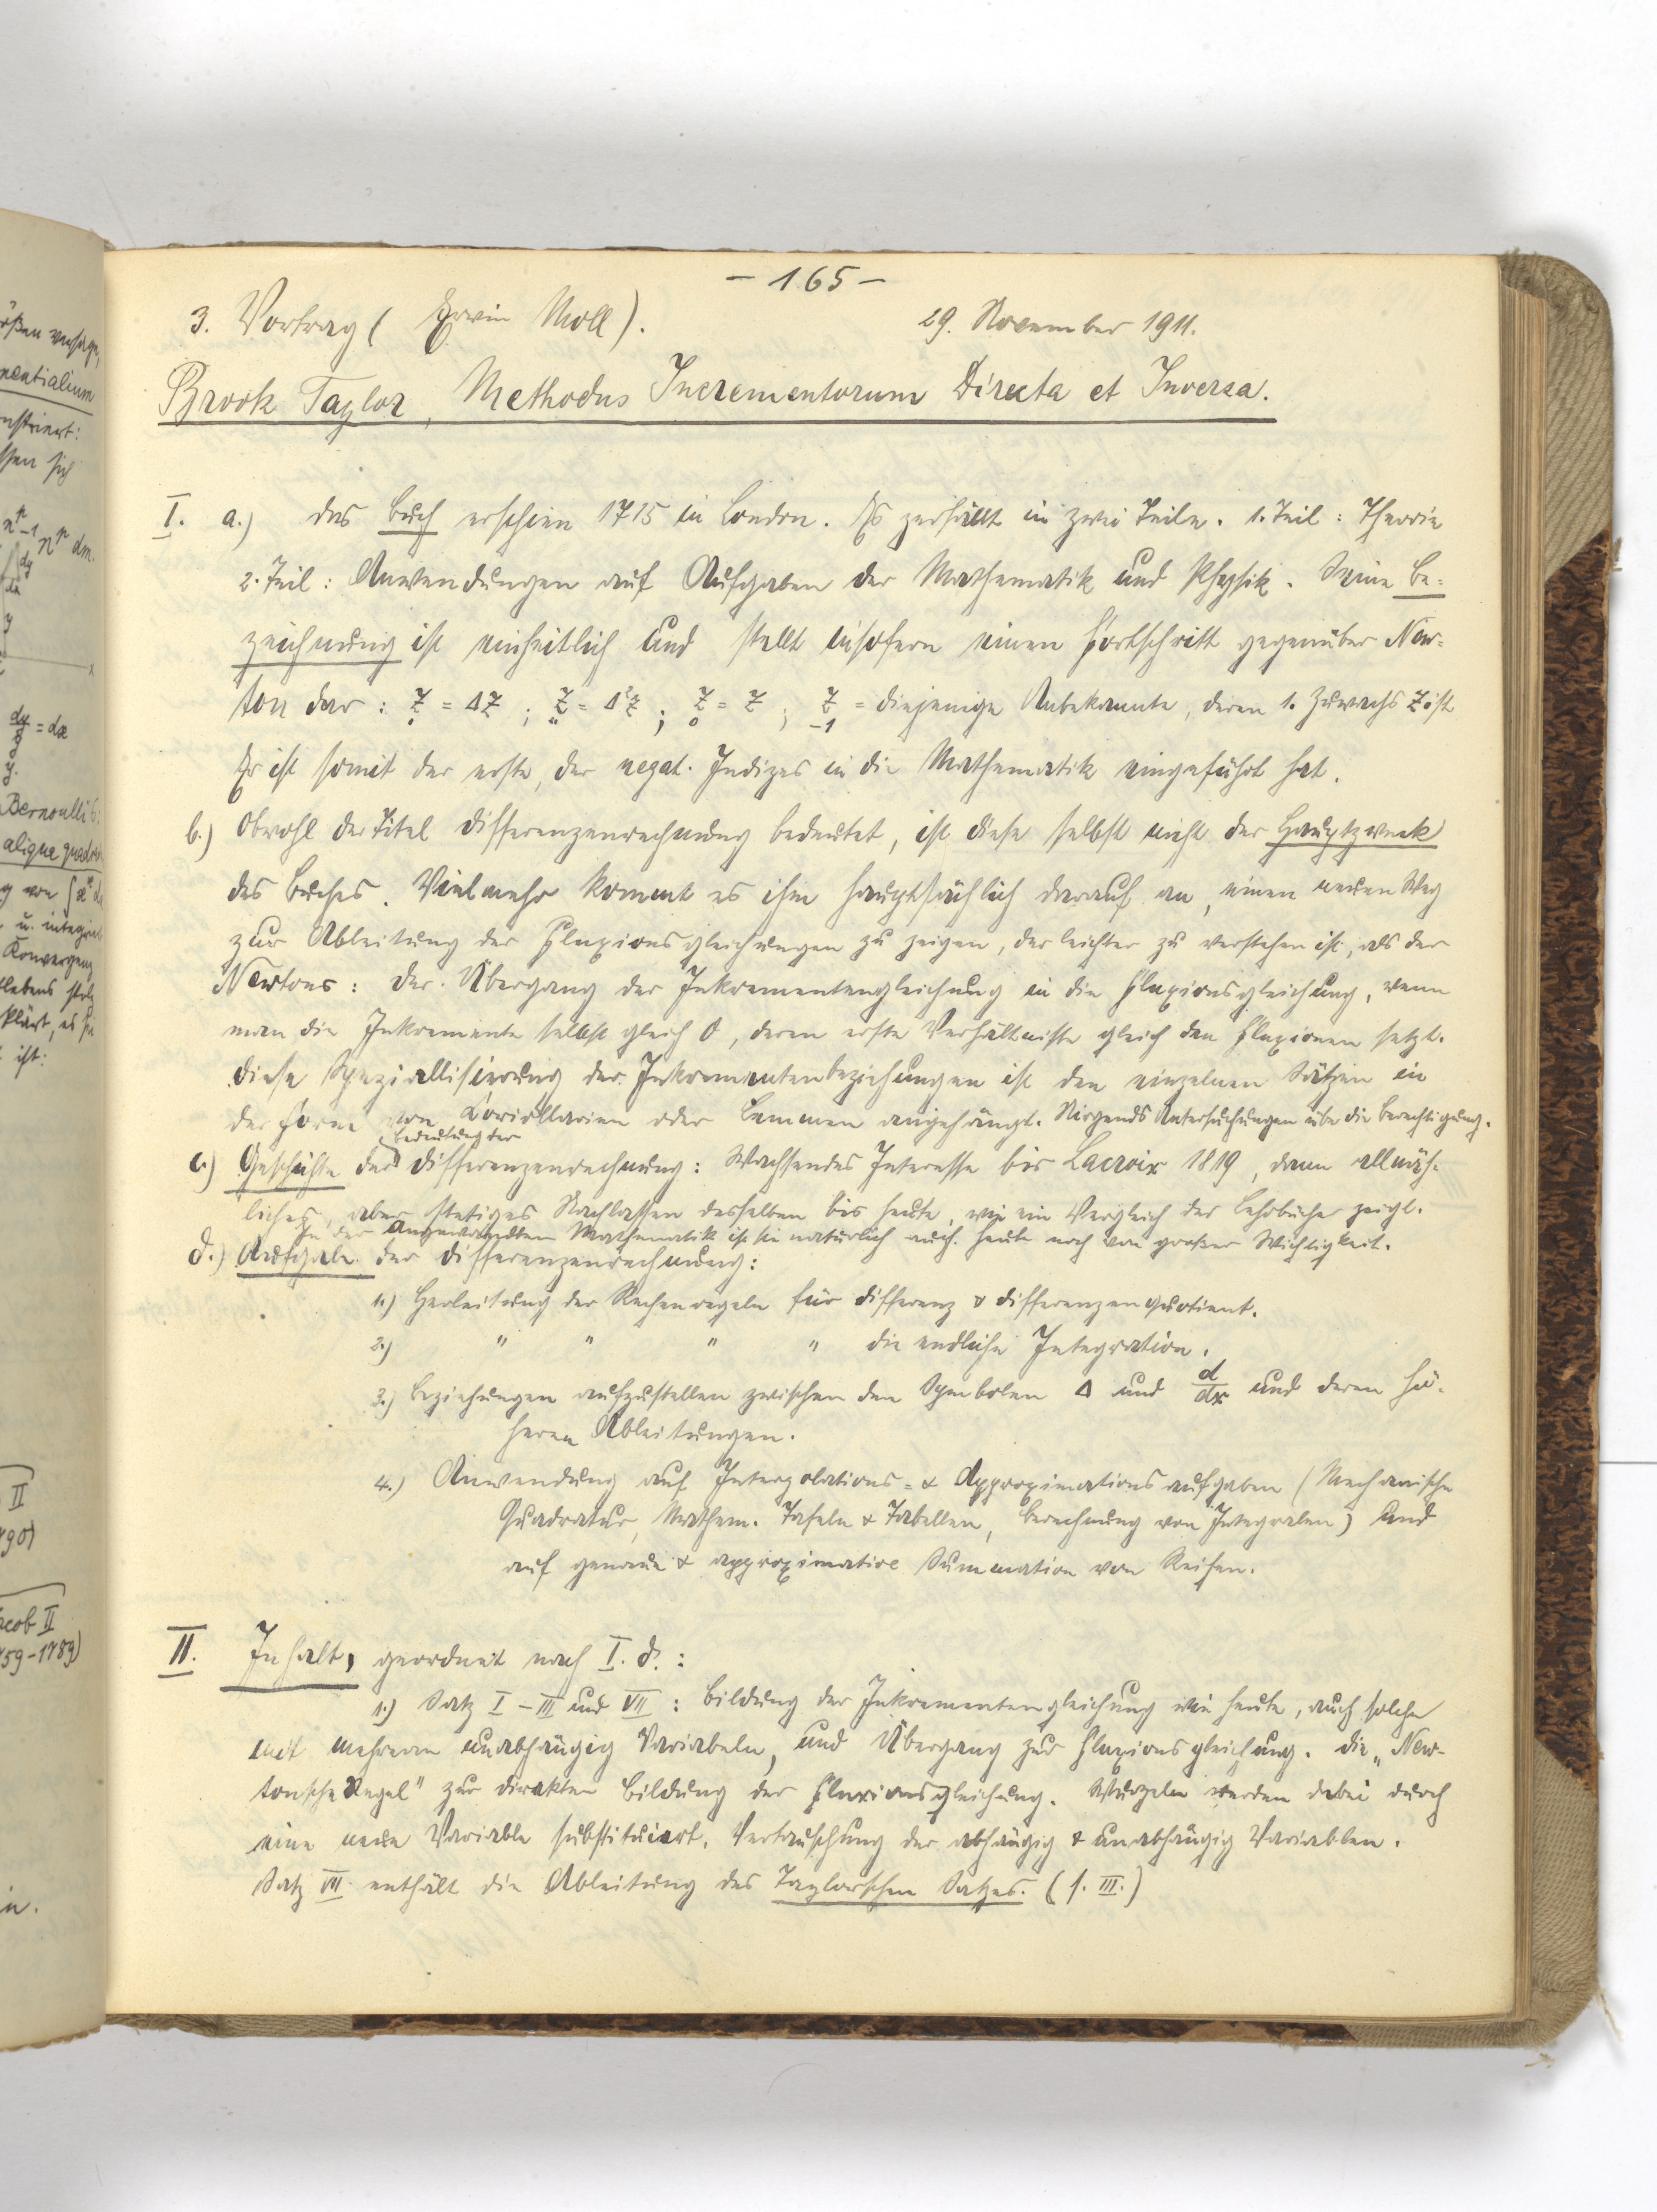 - 165 -
3. Vortrag ( Erwin Moll ). 29. November 1911.
Brook Taylor, Methodus Incrementorum Directa et Inversa.
I. a.) Das Buch erschien 1715 in London. Es zerfällt in zwei Teile. 1. Teil: Theorie
2. Teil: Anwendungen auf Aufgaben der Mathematik und Physik. Seine Be=
zeichnung ist einheitlich und stellt insofern einen Fortschritt gegenüber New=
ton dar: Ẓ = ΔZ ; Z̤ = Δ²Z ; Z₀ = Z ; Z₋₁ = diejenige Unbekannte, deren 1. Zuwachs Z ist
Er ist somit der erste, der negat. Indizes in die Mathematik eingeführt hat.
b.) Obwohl der Titel Differenzenrechnung bedeutet, ist diese selbst nicht der Hauptzweck
des Buches. Vielmehr kommt es ihm hauptsächlich darauf an, einen neuen Weg
zur Ableitung der Fluxionsgleichungen zu zeigen, der leichter zu verstehen ist, als der
Newtons: Der Übergang der Inkrementengleichung in die Fluxionsgleichung, wenn
man die Inkremente selbst gleich 0, deren erste Verhältnisse gleich den Fluxionen setzt.
Diese Spezialisierung der Inkrementenbeziehungen ist den einzelnen Sätzen in
der Form von Coriollarien oder Lemmen angehängt. Nirgends Untersuchungen über die Berechtigung.
Bedeutung der
c.) Geschichte der Differenzenrechnung: Wachsendes Interesse bis Lacroix 1819, dann allmäh-
liches, aber stetiges Nachlassen desselben bis heute, wie ein Vergleich der Lehrbücher zeigt.
In der angewandten Mathematik ist sie natürlich auch heute noch von großer Wichtigkeit.
d.) Aufgabe der Differenzenrechnung:
1.) Herleitung der Rechenregeln für Differenz & Differenzenquotient.
2.) " " " " die endliche Integration.
3.) Beziehungen aufzustellen zwischen den Symbolen Δ und d/dx und deren hö-
heren Ableitungen.
4.) Anwendung auf Interpolations= & Approximationsaufgaben (Mechanische
Quadratur, Mathem. Tafeln & Tabellen, Berechnung von Integralen) und
auf genaue & approximative Summation von Reihen.
II. Inhalt, geordnet nach I. d.:
1.) Satz I - III und VII: Bildung der Inkrementengleichung wie heute, auch solche
mit mehreren unabhängig Variabeln, und Übergang zur Fluxionsgleichung. Die „New-
tonsche Regel" zur direkten Bildung der Fluxionsgleichung. Wurzeln werden dabei durch
eine neue Variable substituiert. Vertauschung der abhängig & unabhängig Variablen.
Satz VII enthält die Ableitung des Taylorschen Satzes. (s. III.)